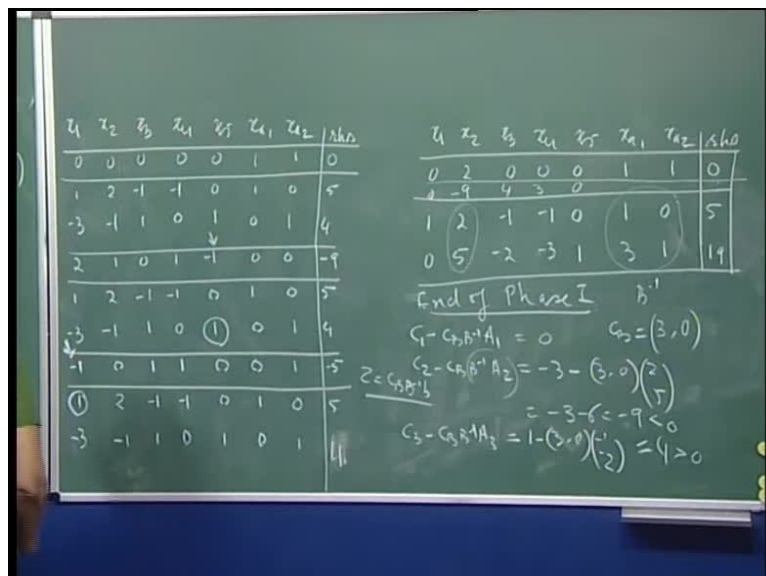 x₁ x₂ x₃ x₄ x₅ xₐ₁ xₐ₂ rhs
0 0 0 0 0 1 1 0
1 2 -1 -1 0 1 0 5
-3 -1 1 0 1 0 1 4
2 1 0 1 -1 0 0 -9
1 2 -1 -1 0 1 0 5
-3 -1 1 0 1 0 1 4
-1 0 1 1 0 0 1 -5
1 2 -1 -1 0 1 0 5
-3 -1 1 0 1 0 1 4
x₁ x₂ x₃ x₄ x₅ xₐ₁ xₐ₂ rhs
0 2 0 0 0 1 1 0
0 -9 4 3 0
1 2 -1 -1 0 1 0 5
0 5 -2 -3 1 3 1 19
End of Phase I B⁻¹
C₁ - C_B B⁻¹A₁ = 0 C_B = (3, 0)
C₂ - C_B B⁻¹A₂ = -3 - (3, 0)(2 5)
Z = C_B B⁻¹b
= -3 - 6 = -9 < 0
C₃ - C_B B⁻¹A₃ = 1 - (3, 0)(-1 -2) = 4 > 0